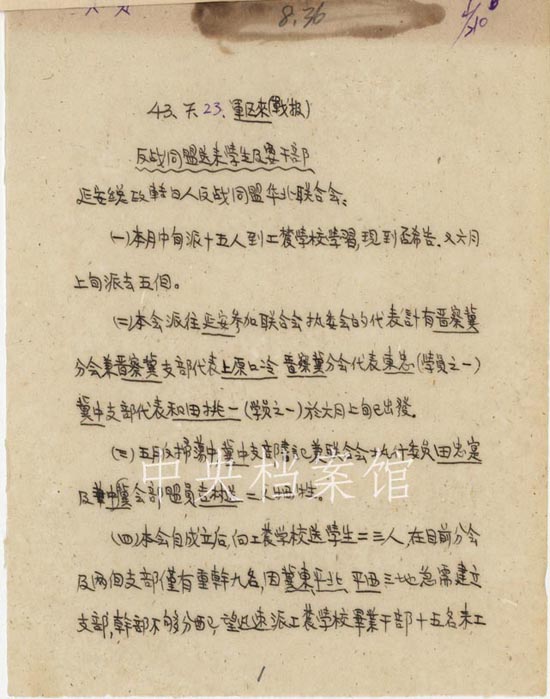 8.36
43、六23、軍区來(戰报)
反战同盟送來學生及要干部
延安總政轉日人反战同盟华北联合会、
(一)本月中旬派十五人到工農学校学習,現到否希告、又六月
上旬派去五個。
(二)本会派往延安参加联合会执委会的代表計有晋察冀
分会兼晋察冀支部代表上原口冷 晋察冀分会代表東忠(学员之一)
冀中支部代表和田挑一(学员之一)於六月上旬已出發。
(三)五月反掃蕩中冀中支部書記兼联合会执行委员田忠寔
及冀中支部盟员吉林 二人犧牲。
(四)本会自成立后,向工農学校送學生二三人,在目前分会
及两個支部僅有重幹九名,因冀東、平北、平西三地急需建立
支部,幹部不够分配,望迅速派工農学校畢業干部十五名來工
1
中央档案馆